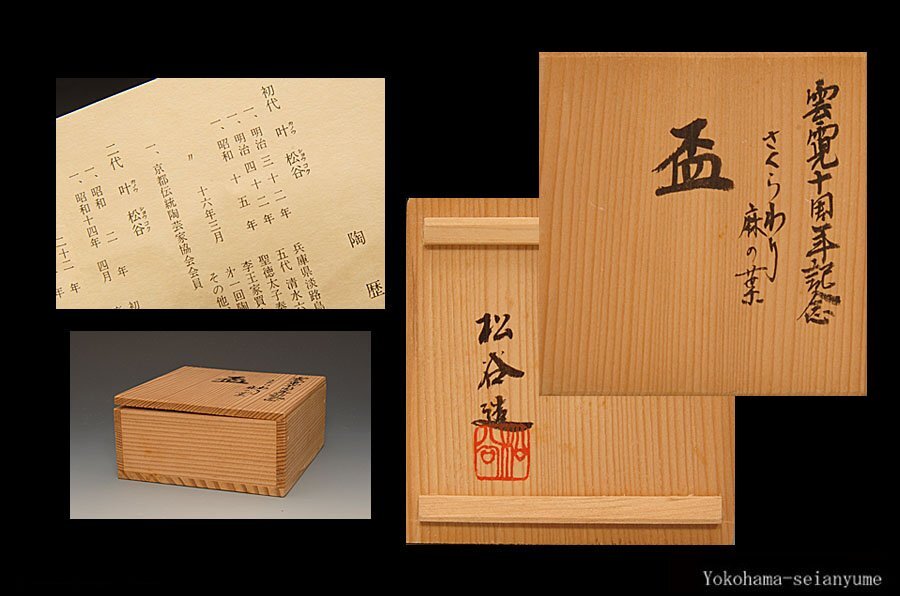 陶歴
初代 叶 松谷
カノウ ショウコク
一、明治三十二年 兵庫県淡路島
一、明治四十五年 五代 清水六
一、昭和十年 聖徳太子奉
〃 十六年三月 李王家買
才一回陶
その他
一、京都伝統陶芸家協会会員
二代 叶 松谷
カノウ ショウコク
一、昭和二年 初
一、昭和十四年四月
二十一年
雲寛十周年記念
さくらわり
麻の葉
盃
松谷造
松谷
Yokohama-seianyume